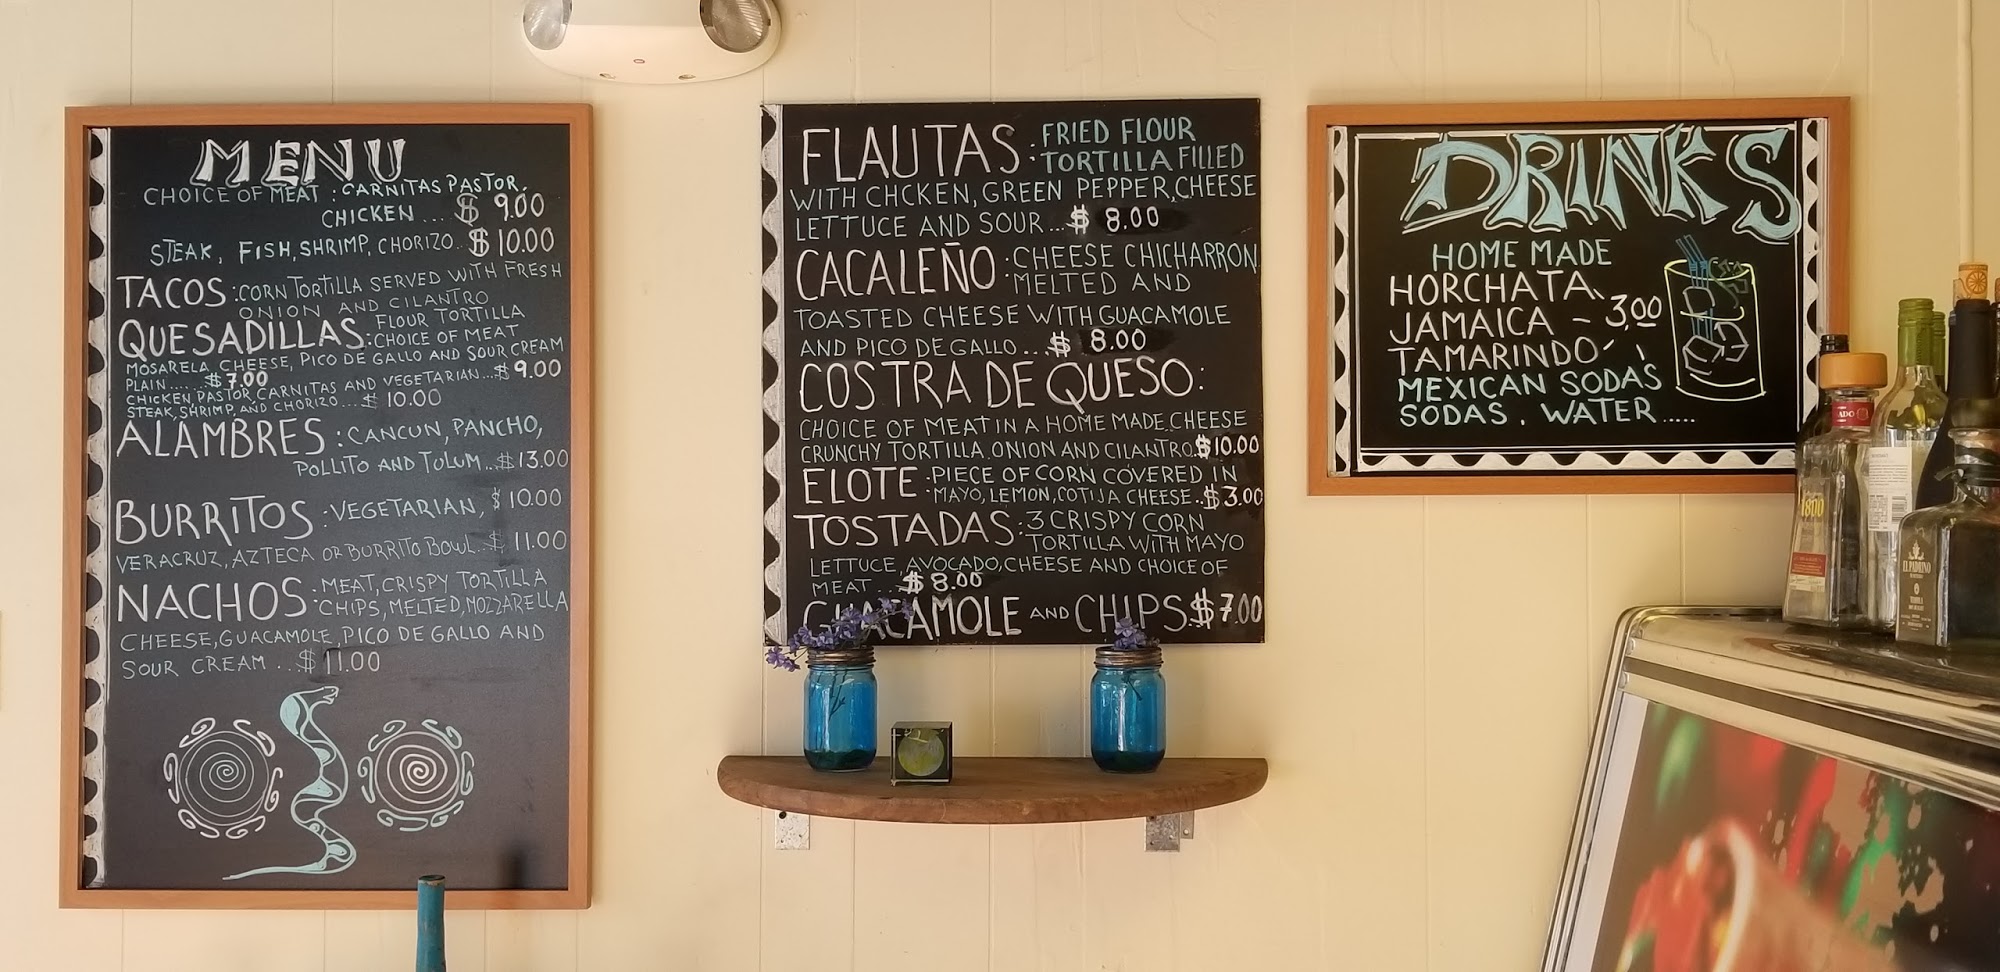 MENU
CHOICE OF MEAT : CARNITAS PASTOR,
CHICKEN ... $ 9.00
STEAK, FISH, SHRIMP, CHORIZO.. $ 10.00
TACOS : CORN TORTILLA SERVED WITH FRESH
ONION AND CILANTRO
QUESADILLAS : FLOUR TORTILLA
CHOICE OF MEAT
MOSARELA CHEESE, PICO DE GALLO AND SOUR CREAM
PLAIN ..... $ 7.00
CHICKEN, PASTOR, CARNITAS AND VEGETARIAN... $ 9.00
STEAK, SHRIMP, AND CHORIZO .... $ 10.00
ALAMBRES : CANCUN, PANCHO,
POLLITO AND TULUM.. $ 13.00
BURRITOS : VEGETARIAN, $ 10.00
VERACRUZ, AZTECA OR BURRITO BOWL.. $ 11.00
NACHOS : MEAT, CRISPY TORTILLA
CHIPS, MELTED, MOZZARELLA
CHEESE, GUACAMOLE, PICO DE GALLO AND
SOUR CREAM ... $ 11.00
FLAUTAS : FRIED FLOUR
TORTILLA FILLED
WITH CHCKEN, GREEN PEPPER, CHEESE
LETTUCE AND SOUR ... $ 8.00
CACALEÑO : CHEESE CHICHARRON
MELTED AND
TOASTED CHEESE WITH GUACAMOLE
AND PICO DE GALLO ... $ 8.00
COSTRA DE QUESO :
CHOICE OF MEAT IN A HOME MADE, CHEESE
CRUNCHY TORTILLA. ONION AND CILANTRO. $ 10.00
ELOTE : PIECE OF CORN COVERED IN
MAYO, LEMON, COTIJA CHEESE.. $ 3.00
TOSTADAS : 3 CRISPY CORN
TORTILLA WITH MAYO
LETTUCE, AVOCADO, CHEESE AND CHOICE OF
MEAT ... $ 8.00
GUACAMOLE AND CHIPS $ 7.00
DRINKS
HOME MADE
HORCHATA
JAMAICA - 3.00
TAMARINDO
MEXICAN SODAS
SODAS, WATER .....
1800
EL PADRINO